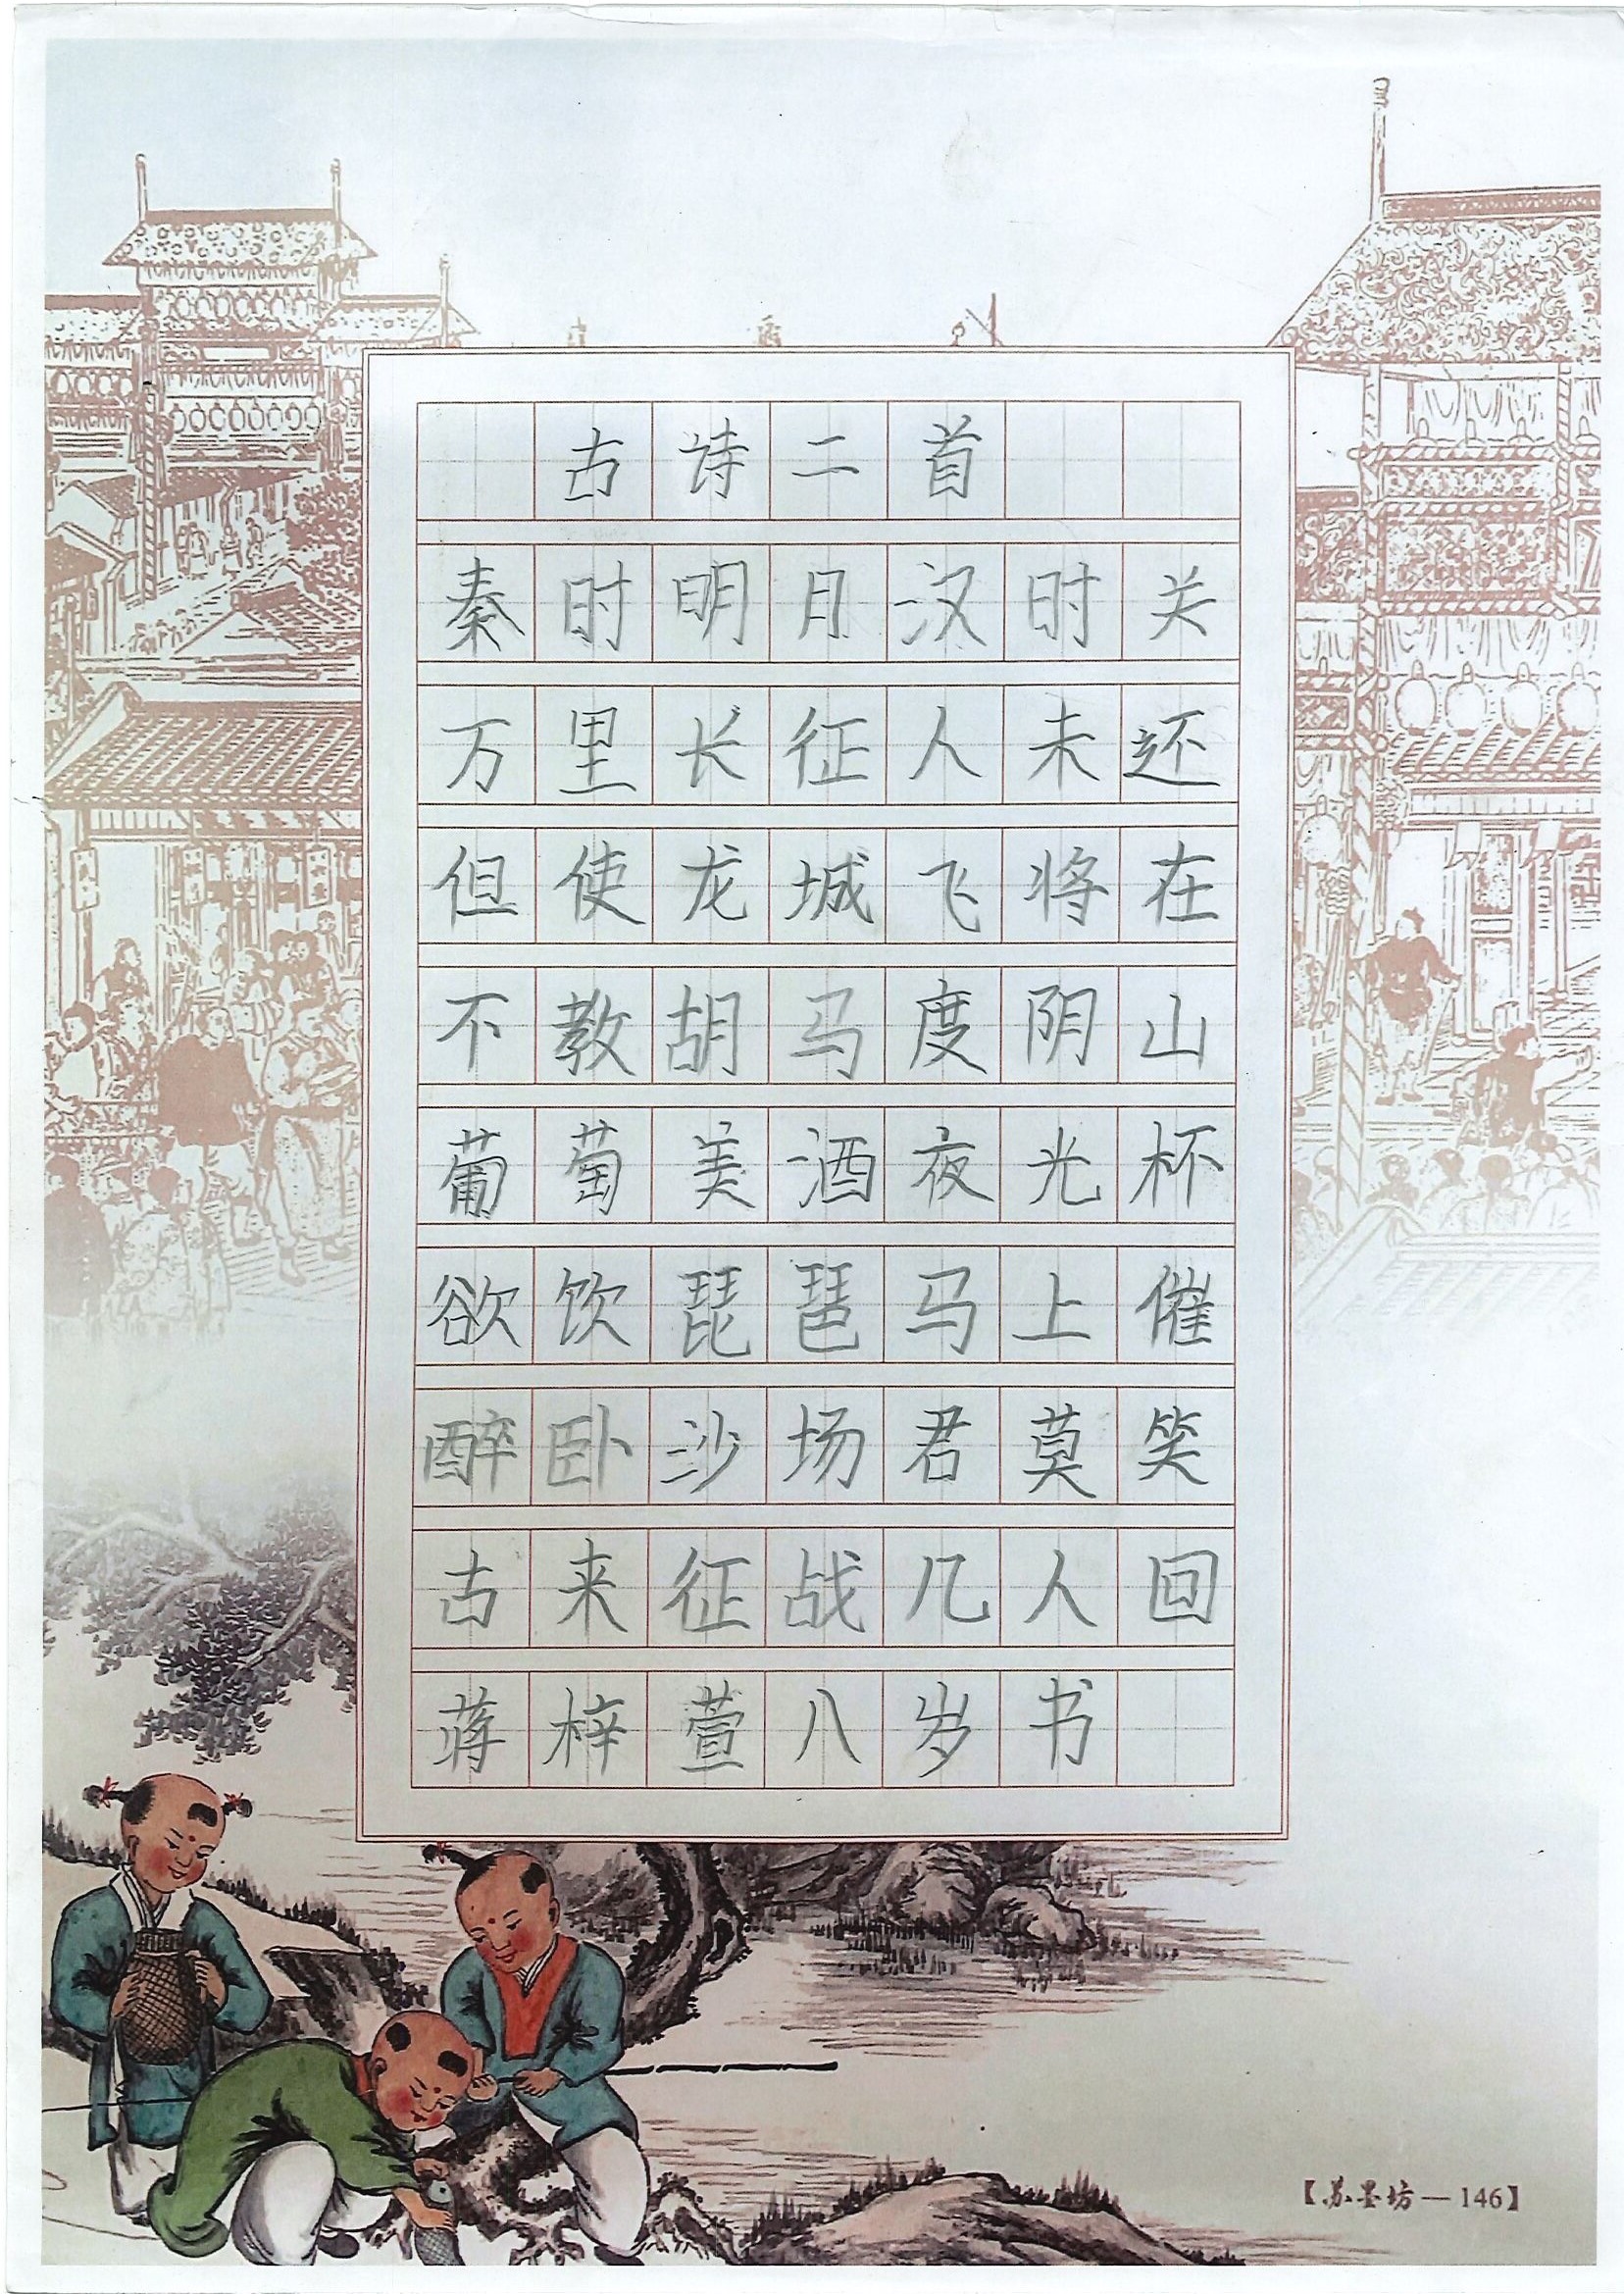 古诗二首
秦时明月汉时关
万里长征人未还
但使龙城飞将在
不教胡马度阴山
葡萄美酒夜光杯
欲饮琵琶马上催
醉卧沙场君莫笑
古来征战几人回
蒋梓萱八岁书
【苏墨坊—146】